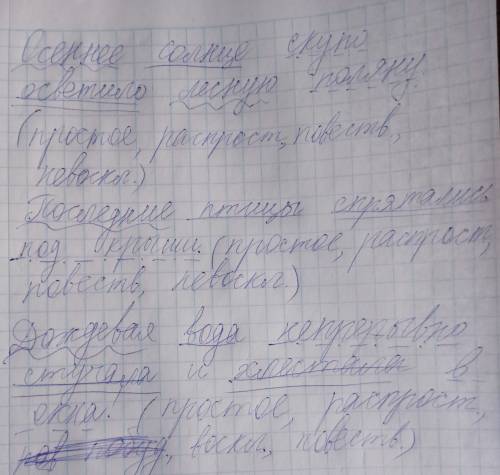 Осеннее солнце скупо
осветило лесную поляну.
(простое, распрост, повеств,
невоскл.)
Последние птицы спрятались
под крыши. (простое, распрост,
повеств, невоскл.)
Дождевая вода непрерывно
стучала и хлестала в
окна. (простое, распрост,
воскл, повеств.)